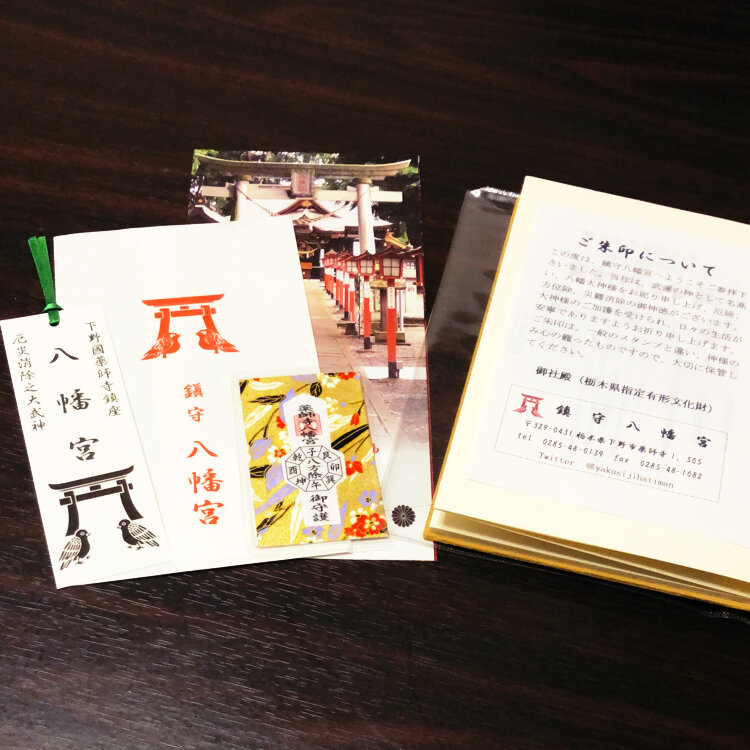 下野國薬師寺鎮座
八幡宮
厄災消除之大武神
鎮守
八幡宮
薬師寺八幡宮
子
艮
卯
巽
午
坤
酉
乾
八方除
御守護
ご朱印について
この度は、鎮守八幡宮へようこそご参拝下
さいました。当社は、武運の神として名高
い、八幡大神様をお祀り申し上げ、厄除、
方位除、災難消除の御神徳がございます。
大神様のご加護を受けられ、日々の生活が
安寧でありますようお祈り申し上げます。
ご朱印は、一般のスタンプと違い、神様の
み心の籠ったものですので、大切に保管し
てください。
御社殿（栃木県指定有形文化財）
鎮守八幡宮
〒329-0431 栃木県下野市薬師寺1,505
tel 0285-48-0139 fax 0285-48-1082
Twitter @yakusijihatiman